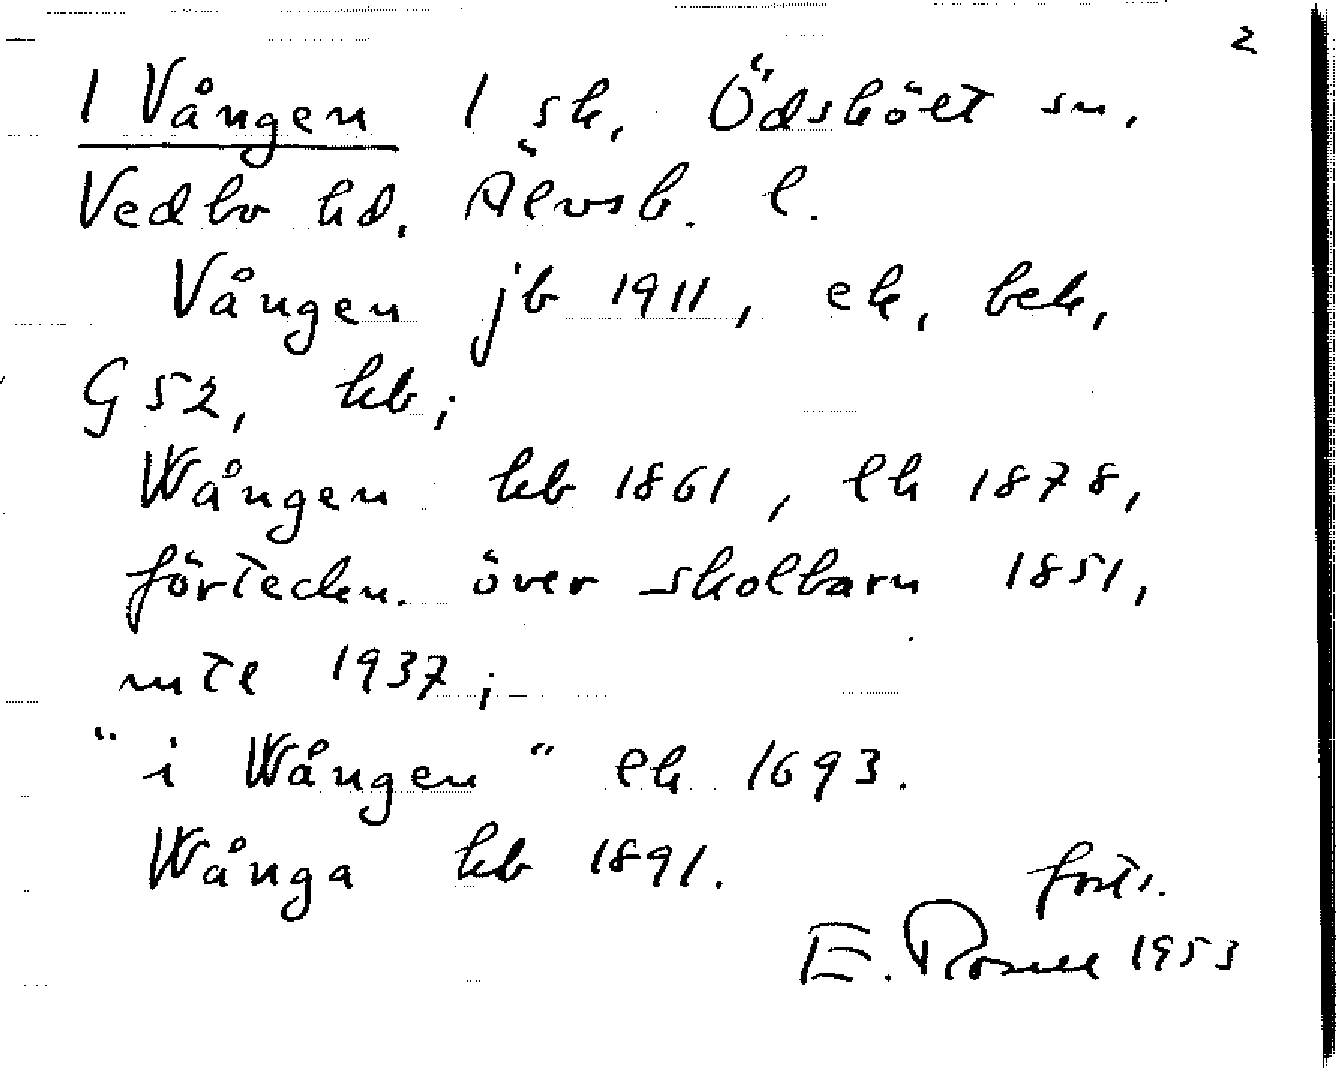 2
1 Vången 1 sk, Ödskölt sn,
Vedbo hd, Älvsb. l.
Vången jb 1911, ek, bek,
G 52, kb;
Wången kb 1861, lk 1878,
förteckn. över skolbarn 1851,
mtl 1937;
"i Wången" lk 1693.
Wånga kb 1891.
forts.
E. Rosell 1953